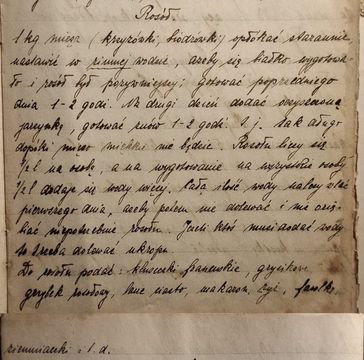 Rosół.
1 kg mięsa (krzyżówki, biodrówki) opłókać starannie
nastawić w zimnej wodzie, ażeby się białko wygotowa-
ło i rosół był pożywniejszy; gotować poprzedniego
dnia 1-2 godz. Na drugi dzień dodać oczyszczoną
jarzynkę, gotować znów 1-2 godz. t. j. tak długo
dopóki mięso miękkie nie będzie. Rosołu liczy się
½ l na osobę, a na wygotowanie na wszystkie osoby
½ l dodaje się wody więcej, całą ilość wody nalewa się
pierwszego dnia, ażeby potem nie dolewać i nie ozię-
biać niepotrzebnie rosołu. Jeśli ktoś musi dodać wody
to trzeba dolewać ukropu.
Do rosołu podać: kluseczki francuskie, grysikowe
grzybek rosołowy, lane ciasto, makaron, ryż, fasolkę,
ziemniaczki i t. d.